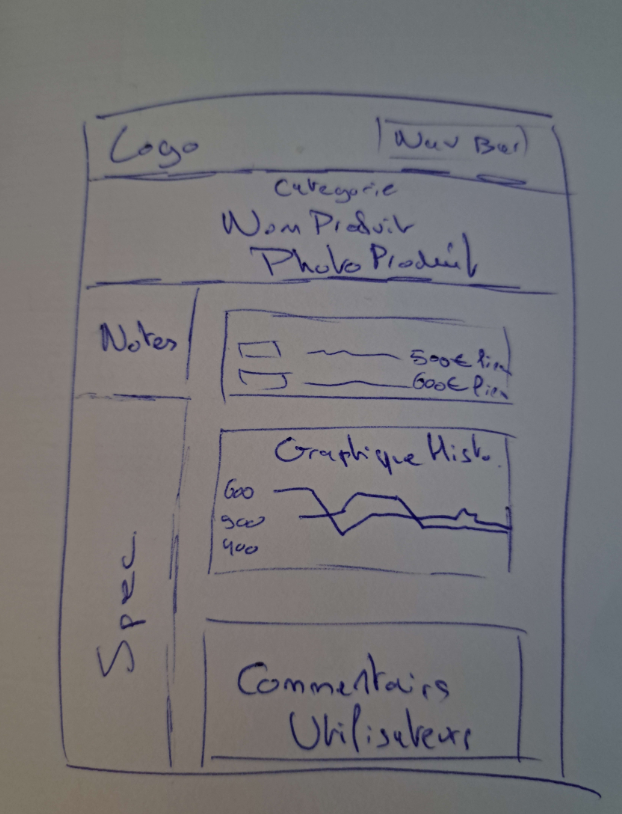 Logo
Nav Bar
Categorie
Nom Produit
Photo Produit
Notes
500€ lien
600€ lien
Graphique Histo.
600
500
400
Spec.
Commentairs
Utilisateurs